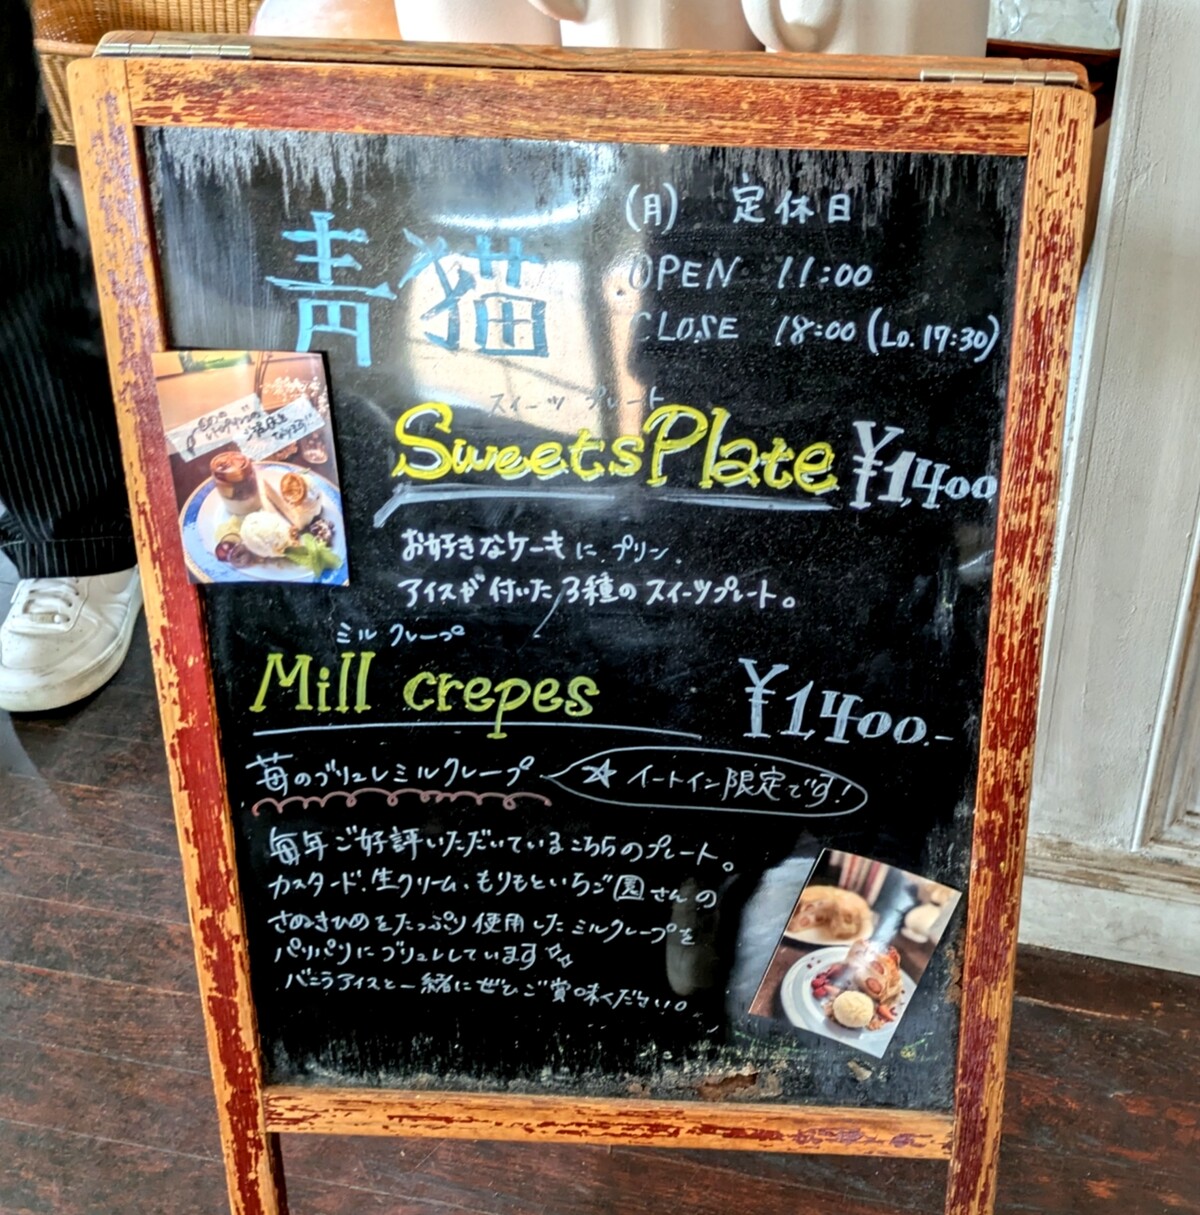 青猫
(月) 定休日
OPEN 11:00
CLOSE 18:00 (Lo. 17:30)
スイーツ プレート
Sweets Plate ¥1400
お好きなケーキに プリン、
アイスが付いた 3種のスイーツプレート。
ミル クレープ
Mill crepes ¥1400.-
苺のブリュレミルクレープ
☆ イートイン限定です!
毎年ご好評いただいているこちらのプレート。
カスタード、生クリーム、もりもといちご園さんの
さぬきひめをたっぷり使用したミルクレープを
パリパリにブリュレしています
バニラアイスと一緒にぜひご賞味ください。